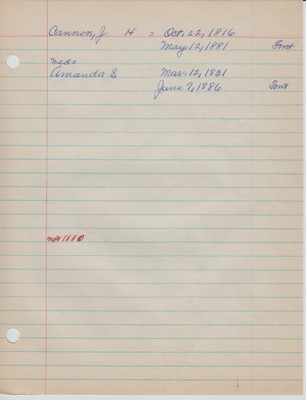 Cannon, J H = Oct. 22, 1816
May 12, 1881 Font
Mrs
Amanda S Mar. 12, 1831
June 7, 1886 Font